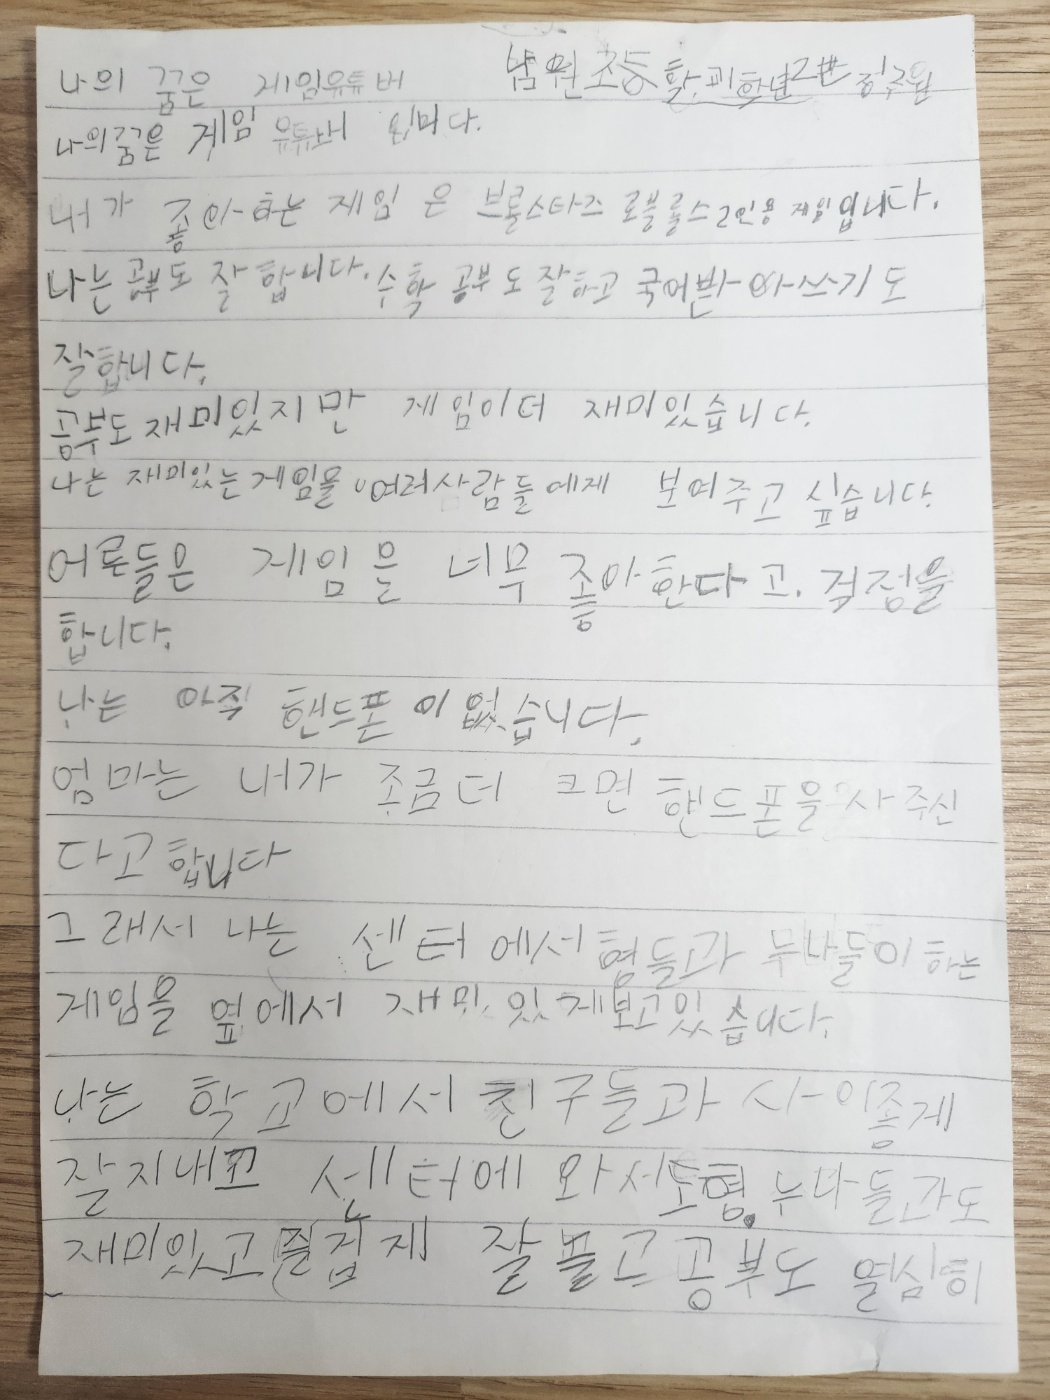 나의 꿈은 게임유튜버 남원초등학교 1학년 2반 정주원
나의꿈은 게임 유튜버 입니다.
내가 좋아하는 게임은 브롤스타즈 로블룩스 2인용 게임입니다.
나는 공부도 잘합니다. 수학 공부도 잘하고 국어받아쓰기도
잘합니다.
공부도 재미있지만 게임이더 재미있습니다.
나는 재미있는게임을 여러사람들에게 보여주고 싶습니다.
어른들은 게임을 너무 좋아한다고. 걱정을
합니다.
나는 아직 핸드폰이없습니다.
엄마는 내가 조금더 크면 핸드폰을사주신
다고합니다
그래서 나는 센터에서 형들과 누나들이하는
게임을 옆에서 재미있게보고있습니다.
나는 학교에서 친구들과 사이좋게
잘지내고 센터에 와서도형누나들과도
재미있고즐겁게 잘놀고공부도 열심히